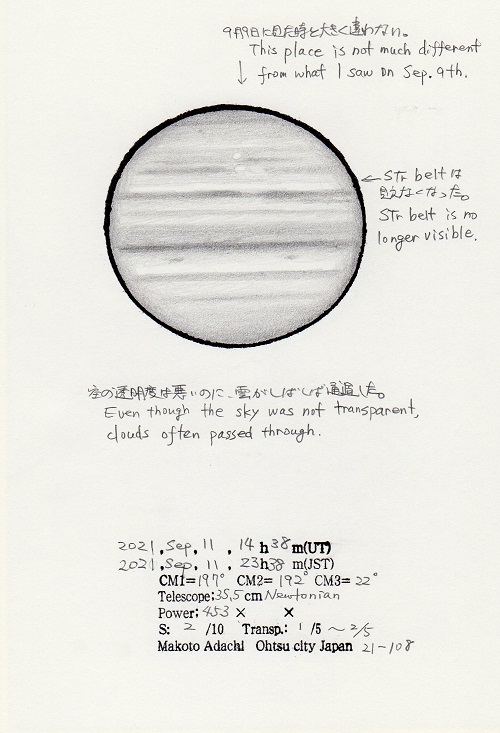 9月9日に見た時と大きく違わない。
This place is not much different
↓ from what I saw on Sep. 9th.
← STr belt は
見えなくなった。
STr belt is no
longer visible.
空の透明度は悪いのに、雲がしばしば通過した。
Even though the sky was not transparent,
clouds often passed through.
2021, Sep, 11, 14 h 38 m(UT)
2021, Sep, 11, 23h38 m(JST)
CM1= 197° CM2= 192° CM3= 22°
Telescope; 35.5 cm Newtonian
Power; 453 × ×
S: 2 /10 Transp.: 1 /5 ~ 2/5
Makoto Adachi Ohtsu city Japan 21-108